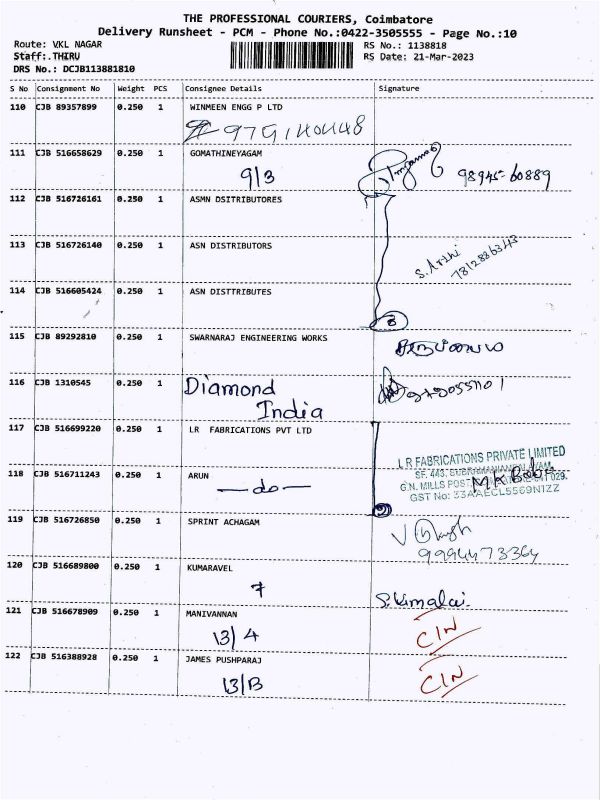 THE PROFESSIONAL COURIERS, Coimbatore
Delivery Runsheet - PCM - Phone No.:0422-3505555 - Page No.:10
Route: VKL NAGAR RS No.: 1138818
Staff:.THIRU RS Date: 21-Mar-2023
DRS No.: DCJB113881810
S No Consignment No Weight PCS Consignee Details Signature
110 CJB 89357899 0.250 1 WINMEEN ENGG P LTD
111 CJB 516658629 0.250 1 GOMATHINEYAGAM
9/3 98945-60889
112 CJB 516726161 0.250 1 ASMN DSITRIBUTORES
113 CJB 516726140 0.250 1 ASN DISTRIBUTORS
S. Arthi
7812886343
114 CJB 516605424 0.250 1 ASN DISTTRIBUTES
115 CJB 89292810 0.250 1 SWARNARAJ ENGINEERING WORKS
116 CJB 1310545 0.250 1 Diamond
India
117 CJB 516699220 0.250 1 LR FABRICATIONS PVT LTD
L R FABRICATIONS PRIVATE LIMITED
118 CJB 516711243 0.250 1 ARUN
SF. 443,
G.N. MILLS POST, 641 029.
M.K Babu
GST No: 33AAECL5569N1ZZ
—do—
119 CJB 516726850 0.250 1 SPRINT ACHAGAM
9994473364
120 CJB 516689800 0.250 1 KUMARAVEL
7
121 CJB 516678909 0.250 1 MANIVANNAN
13/4 C/N
122 CJB 516388928 0.250 1 JAMES PUSHPARAJ
13/B C/N